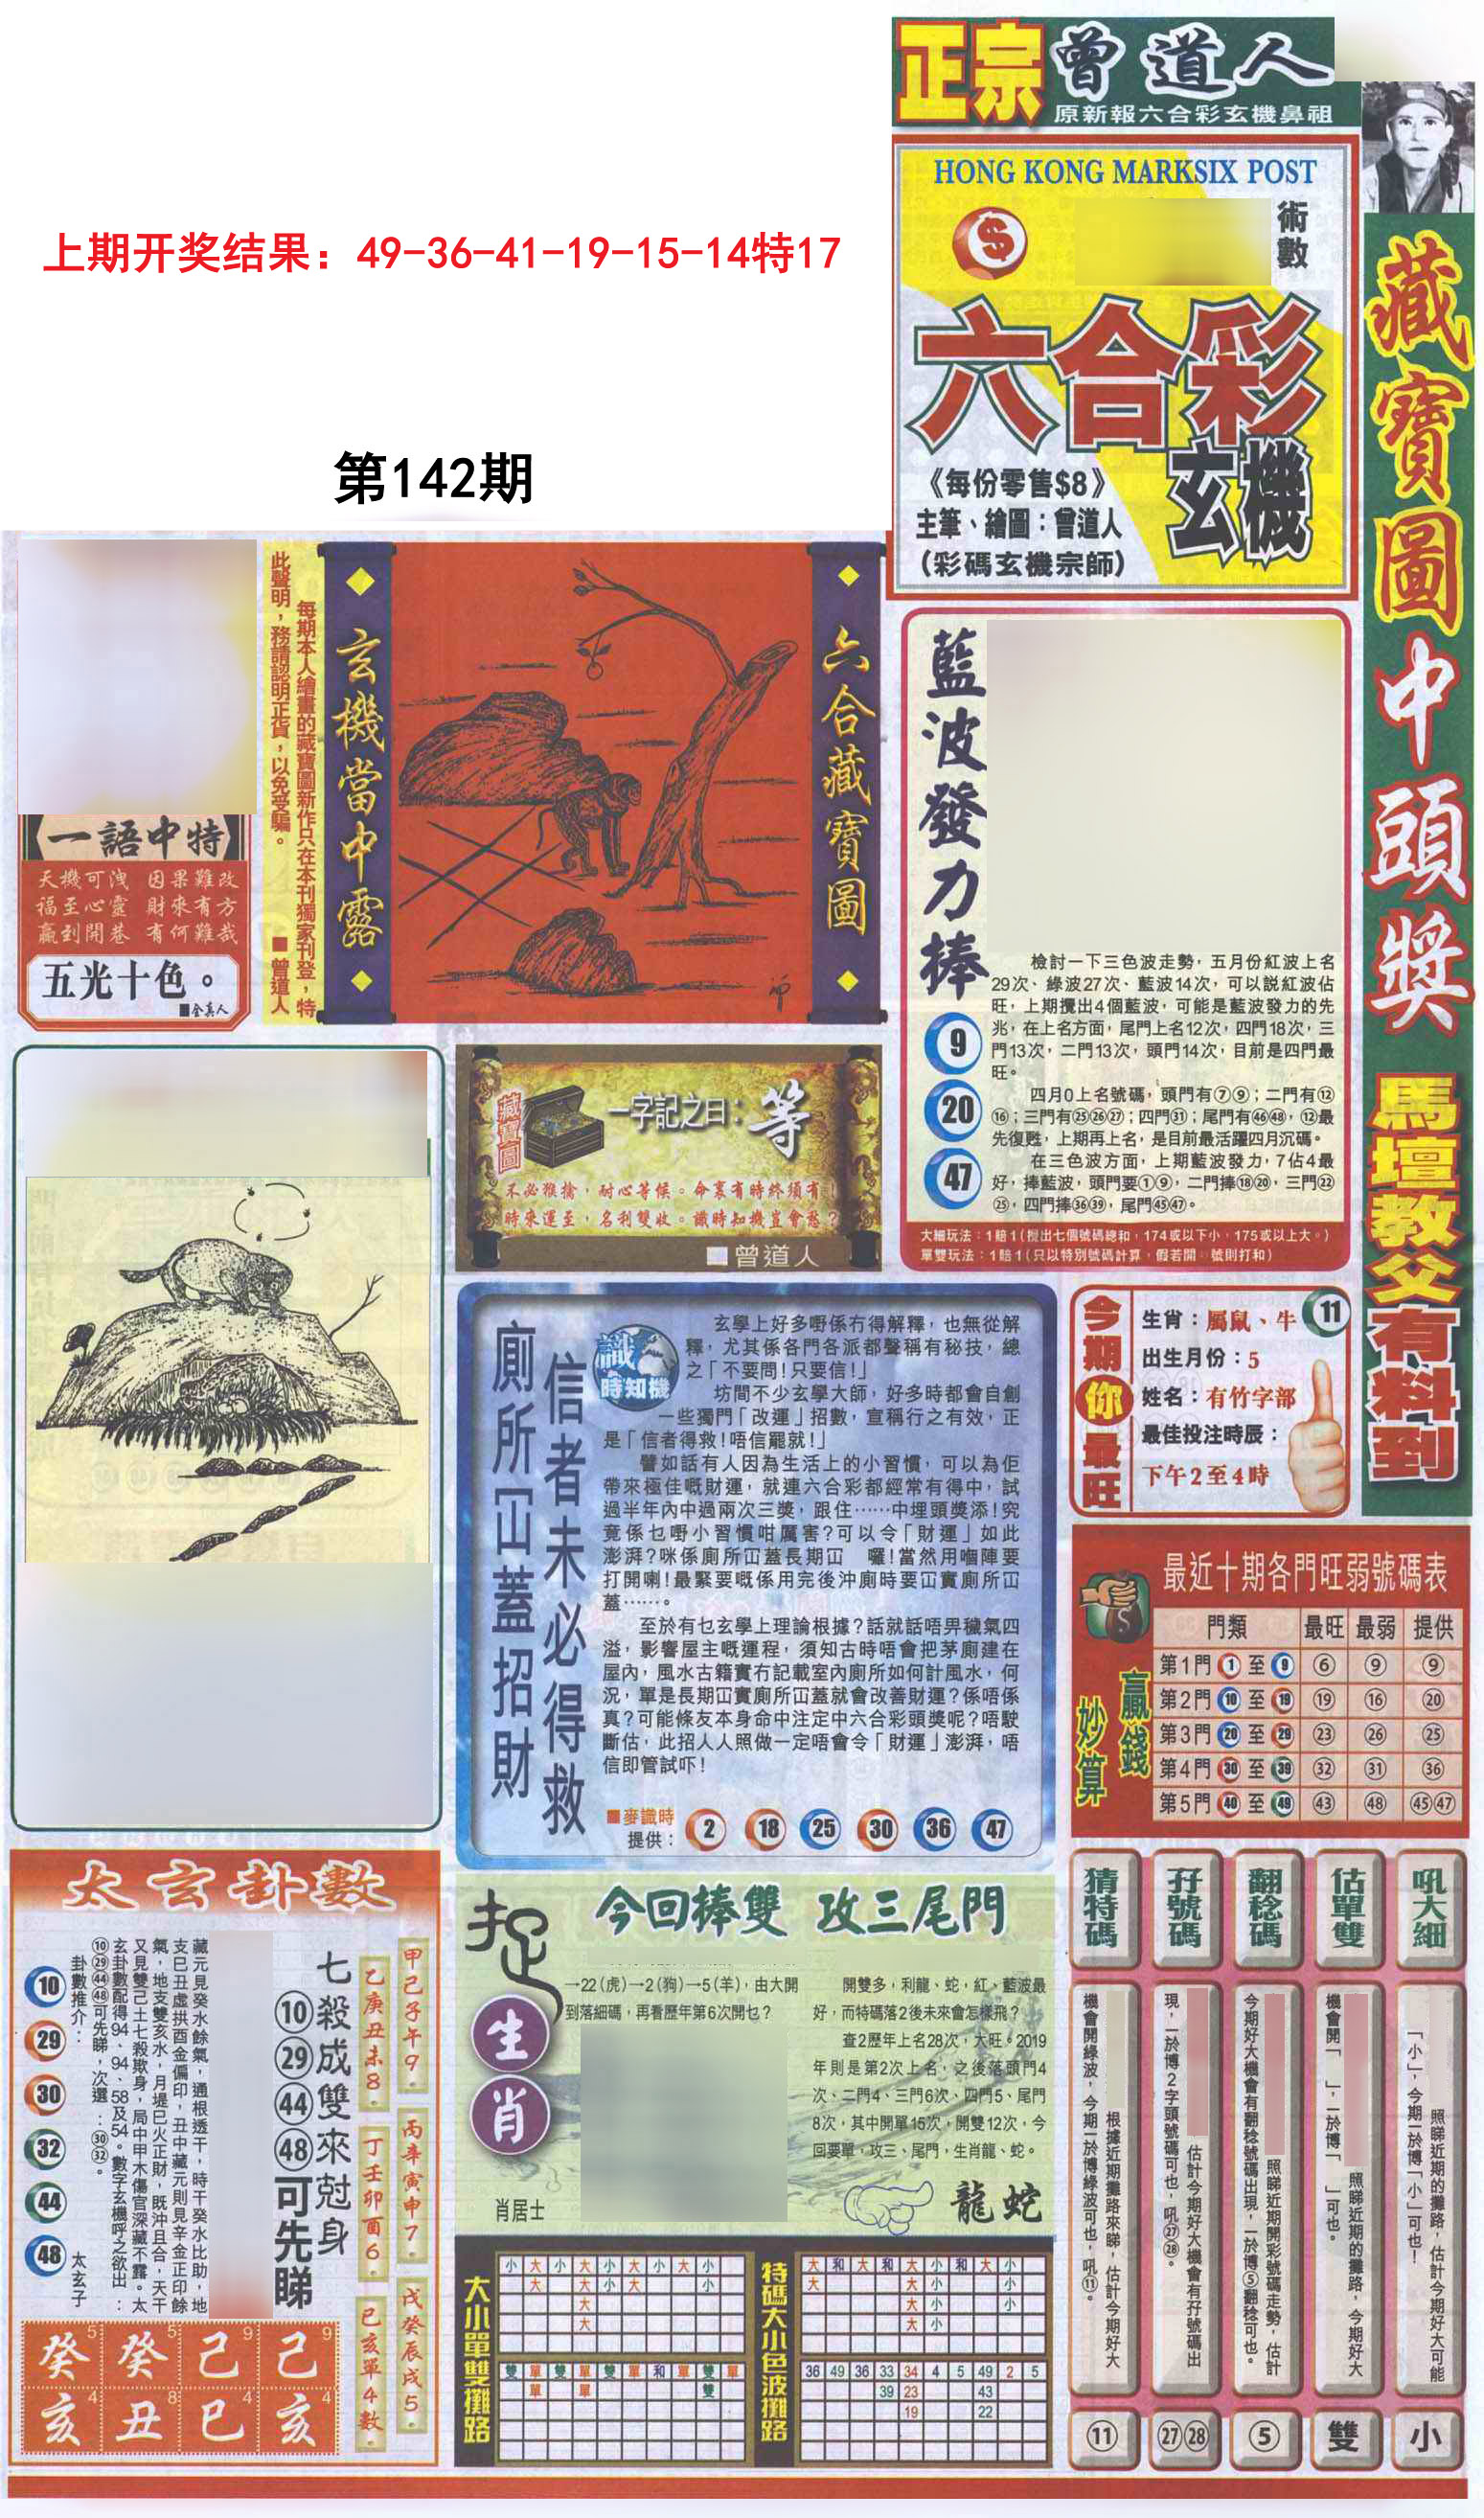 正宗曾道人
原新報六合彩玄機鼻祖
HONG KONG MARKSIX POST
術數
六合彩
玄機
《每份零售$8》
主筆、繪圖：曾道人
（彩碼玄機宗師）
藏寶圖中頭獎
馬壇教父有料到
上期开奖结果：49-36-41-19-15-14特17
第142期
一語中特
天機可洩 因果難改
福至心靈 財來有方
贏到開巷 有何難哉
五光十色。
■全真人
每期本人繪畫的藏寶圖新作只在本刊獨家刊登，特
此聲明，務請認明正貨，以免受騙。
■曾道人
玄機當中露
六合藏寶圖
藍波發力捧
9
20
47
檢討一下三色波走勢，五月份紅波上名
29次、綠波27次、藍波14次，可以説紅波佔
旺，上期攪出4個藍波，可能是藍波發力的先
兆，在上名方面，尾門上名12次，四門18次，三
門13次，二門13次，頭門14次，目前是四門最
旺。
四月0上名號碼，頭門有⑦⑨；二門有⑫
⑯；三門有㉕㉖㉗；四門㉛；尾門有㊻㊽，⑫最
先復甦，上期再上名，是目前最活躍四月沉碼。
在三色波方面，上期藍波發力，7佔4最
好，捧藍波，頭門要①⑨，二門捧⑱⑳，三門㉒
㉕，四門捧㊱㊴，尾門㊺㊼。
大細玩法：1賠1（攪出七個號碼總和，174或以下小，175或以上大。）
單雙玩法：1賠1（只以特別號碼計算，假若開 號則打和）
藏寶圖
一字記之曰：等
不必猴擒，耐心等候。命裏有時終須有！
時來運至，名利雙收。識時知機豈會愁？
■曾道人
信者未必得救
廁所冚蓋招財
識時知機
玄學上好多嘢係冇得解釋，也無從解
釋，尤其係各門各派都聲稱有秘技，總
之「不要問！只要信！」
坊間不少玄學大師，好多時都會自創
一些獨門「改運」招數，宣稱行之有效，正
是「信者得救！唔信罷就！」
譬如話有人因為生活上的小習慣，可以為佢
帶來極佳嘅財運，就連六合彩都經常有得中，試
過半年內中過兩次三獎，跟住……中埋頭獎添！究
竟係乜嘢小習慣咁厲害？可以令「財運」如此
澎湃？咪係廁所冚蓋長期冚 囉！當然用嗰陣要
打開喇！最緊要嘅係用完後沖廁時要冚實廁所冚
蓋……。
至於有乜玄學上理論根據？話就話唔畀穢氣四
溢，影響屋主嘅運程，須知古時唔會把茅廁建在
屋內，風水古籍實冇記載室內廁所如何計風水，何
況，單是長期冚實廁所冚蓋就會改善財運？係唔係
真？可能條友本身命中注定中六合彩頭獎呢？唔駛
斷估，此招人人照做一定唔會令「財運」澎湃，唔
信即管試吓！
■麥識時
提供：
2 18 25 30 36 47
今期你最旺
生肖：屬鼠、牛 11
出生月份：5
姓名：有竹字部
最佳投注時辰：
下午2至4時
妙算贏錢
最近十期各門旺弱號碼表
門類 最旺 最弱 提供
第1門 1 至 9 ⑥ ⑨ ⑨
第2門 10 至 19 ⑲ ⑯ ⑳
第3門 20 至 29 ㉓ ㉖ ㉕
第4門 30 至 39 ㉜ ㉛ ㊱
第5門 40 至 49 ㊸ ㊽ ㊺㊼
太玄卦數
甲己子午9。
乙庚丑未8。
丙辛寅申7。
丁壬卯酉6。
戊癸辰戌5。
巳亥單4數。
七殺成雙來尅身
⑩㉙㊹㊽可先睇
藏元見癸水餘氣，通根透干，時干癸水比助，地
支巳丑虛拱酉金偏印，丑中藏元則見辛金正印餘
氣，地支雙亥水，月堤巳火正財，既沖且合，天干
又見雙己土七殺欺身，局中甲木傷官深藏不露。太
玄卦數配得94、94、58及54。數字玄機呼之欲出：
⑩㉙㊹㊽可先睇，次選：㉚㉜。
卦數推介：
10
29
30
32
44
48
太玄子
癸5 癸5 己9 己9
亥4 丑8 巳4 亥4
捉生肖
今回棒雙 攻三尾門
→22（虎）→2（狗）→5（羊），由大開
到落細碼，再看歷年第6次開乜？
肖居士
開雙多，利龍、蛇，紅、藍波最
好，而特碼落2後未來會怎樣飛？
查2歷年上名28次，大旺。2019
年則是第2次上名，之後落頭門4
次、二門4、三門6次、四門5、尾門
8次，其中開單15次，開雙12次，今
回要單，攻三、尾門，生肖龍、蛇。
龍 蛇
大小單雙攤路
小 大 小 大 小 大 小 大 小
大 大 小 大 小
大
大
雙 單 雙 單 雙 單 和 單 雙 單
單 單 雙
特碼大小色波攤路
大 和 大 和 大 小 和 大 小
大 大 小 小
大 小 小
大 小
36 49 36 33 34 4 5 49 2 5
39 23 43
19 22
猜特碼
根據近期攤路來睇，估計今期好大
機會開綠波，今期一於博綠波可也，吼⑪。
⑪
孖號碼
估計今期好大機會有孖號碼出
現，一於博2字頭號碼可也，吼㉗㉘。
㉗㉘
翻稔碼
照睇近期開彩號碼走勢，估計
今期好大機會有翻稔號碼出現，一於博⑤翻稔可也。
⑤
估單雙
照睇近期的攤路，今期好大
機會開「 」，一於博「 」可也。
雙
吼大細
照睇近期的攤路，估計今期好大可能
「小」，今期一於博「小」可也！
小